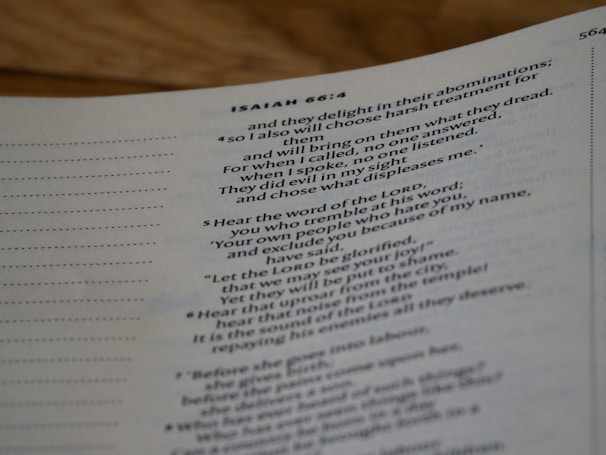 ISAIAH 66:4
564
and they delight in their abominations;
4 so I also will choose harsh treatment for
them
and will bring on them what they dread.
For when I called, no one answered,
when I spoke, no one listened.
They did evil in my sight
and chose what displeases me.’
5 Hear the word of the LORD,
you who tremble at his word:
‘Your own people who hate you,
and exclude you because of my name,
have said,
“Let the LORD be glorified,
that we may see your joy!”
Yet they will be put to shame.
6 Hear that uproar from the city,
hear that noise from the temple!
It is the sound of the LORD
repaying his enemies all they deserve.
7 ‘Before she goes into labour,
she gives birth;
before the pains come upon her,
she delivers a son.
8 Who has ever heard of such things?
Who has ever seen things like this?
Can a country be born in a day